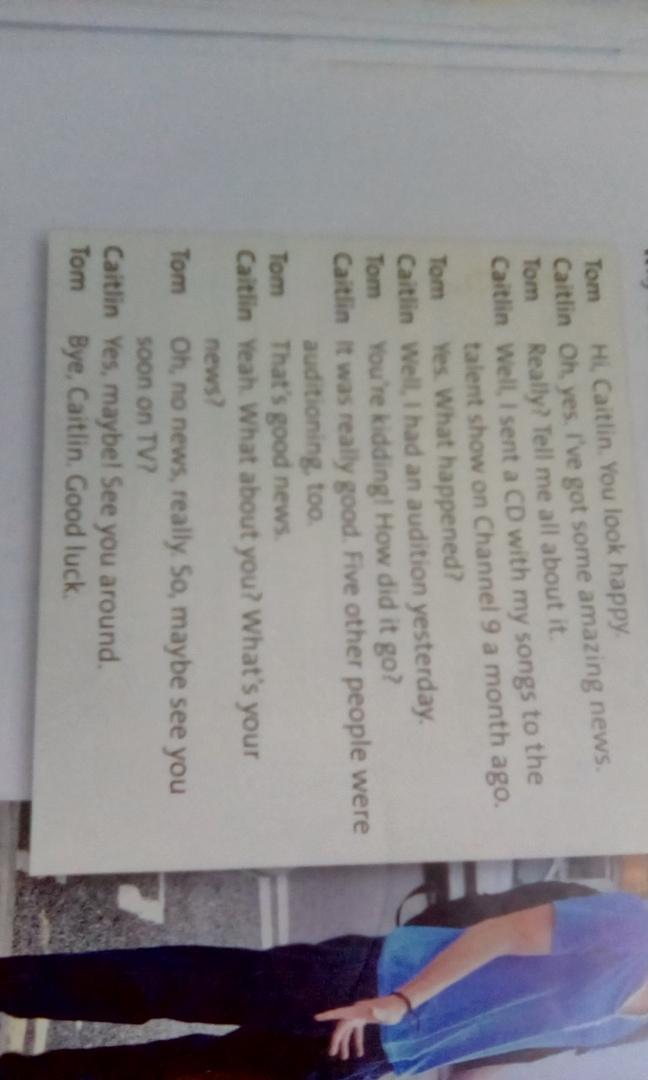 Tom Hi, Caitlin. You look happy.
Caitlin Oh, yes. I've got some amazing news.
Tom Really? Tell me all about it.
Caitlin Well, I sent a CD with my songs to the
talent show on Channel 9 a month ago.
Tom Yes. What happened?
Caitlin Well, I had an audition yesterday.
Tom You're kidding! How did it go?
Caitlin It was really good. Five other people were
auditioning, too.
Tom That's good news.
Caitlin Yeah. What about you? What's your
news?
Tom Oh, no news, really. So, maybe see you
soon on TV?
Caitlin Yes, maybe! See you around.
Tom Bye, Caitlin. Good luck.